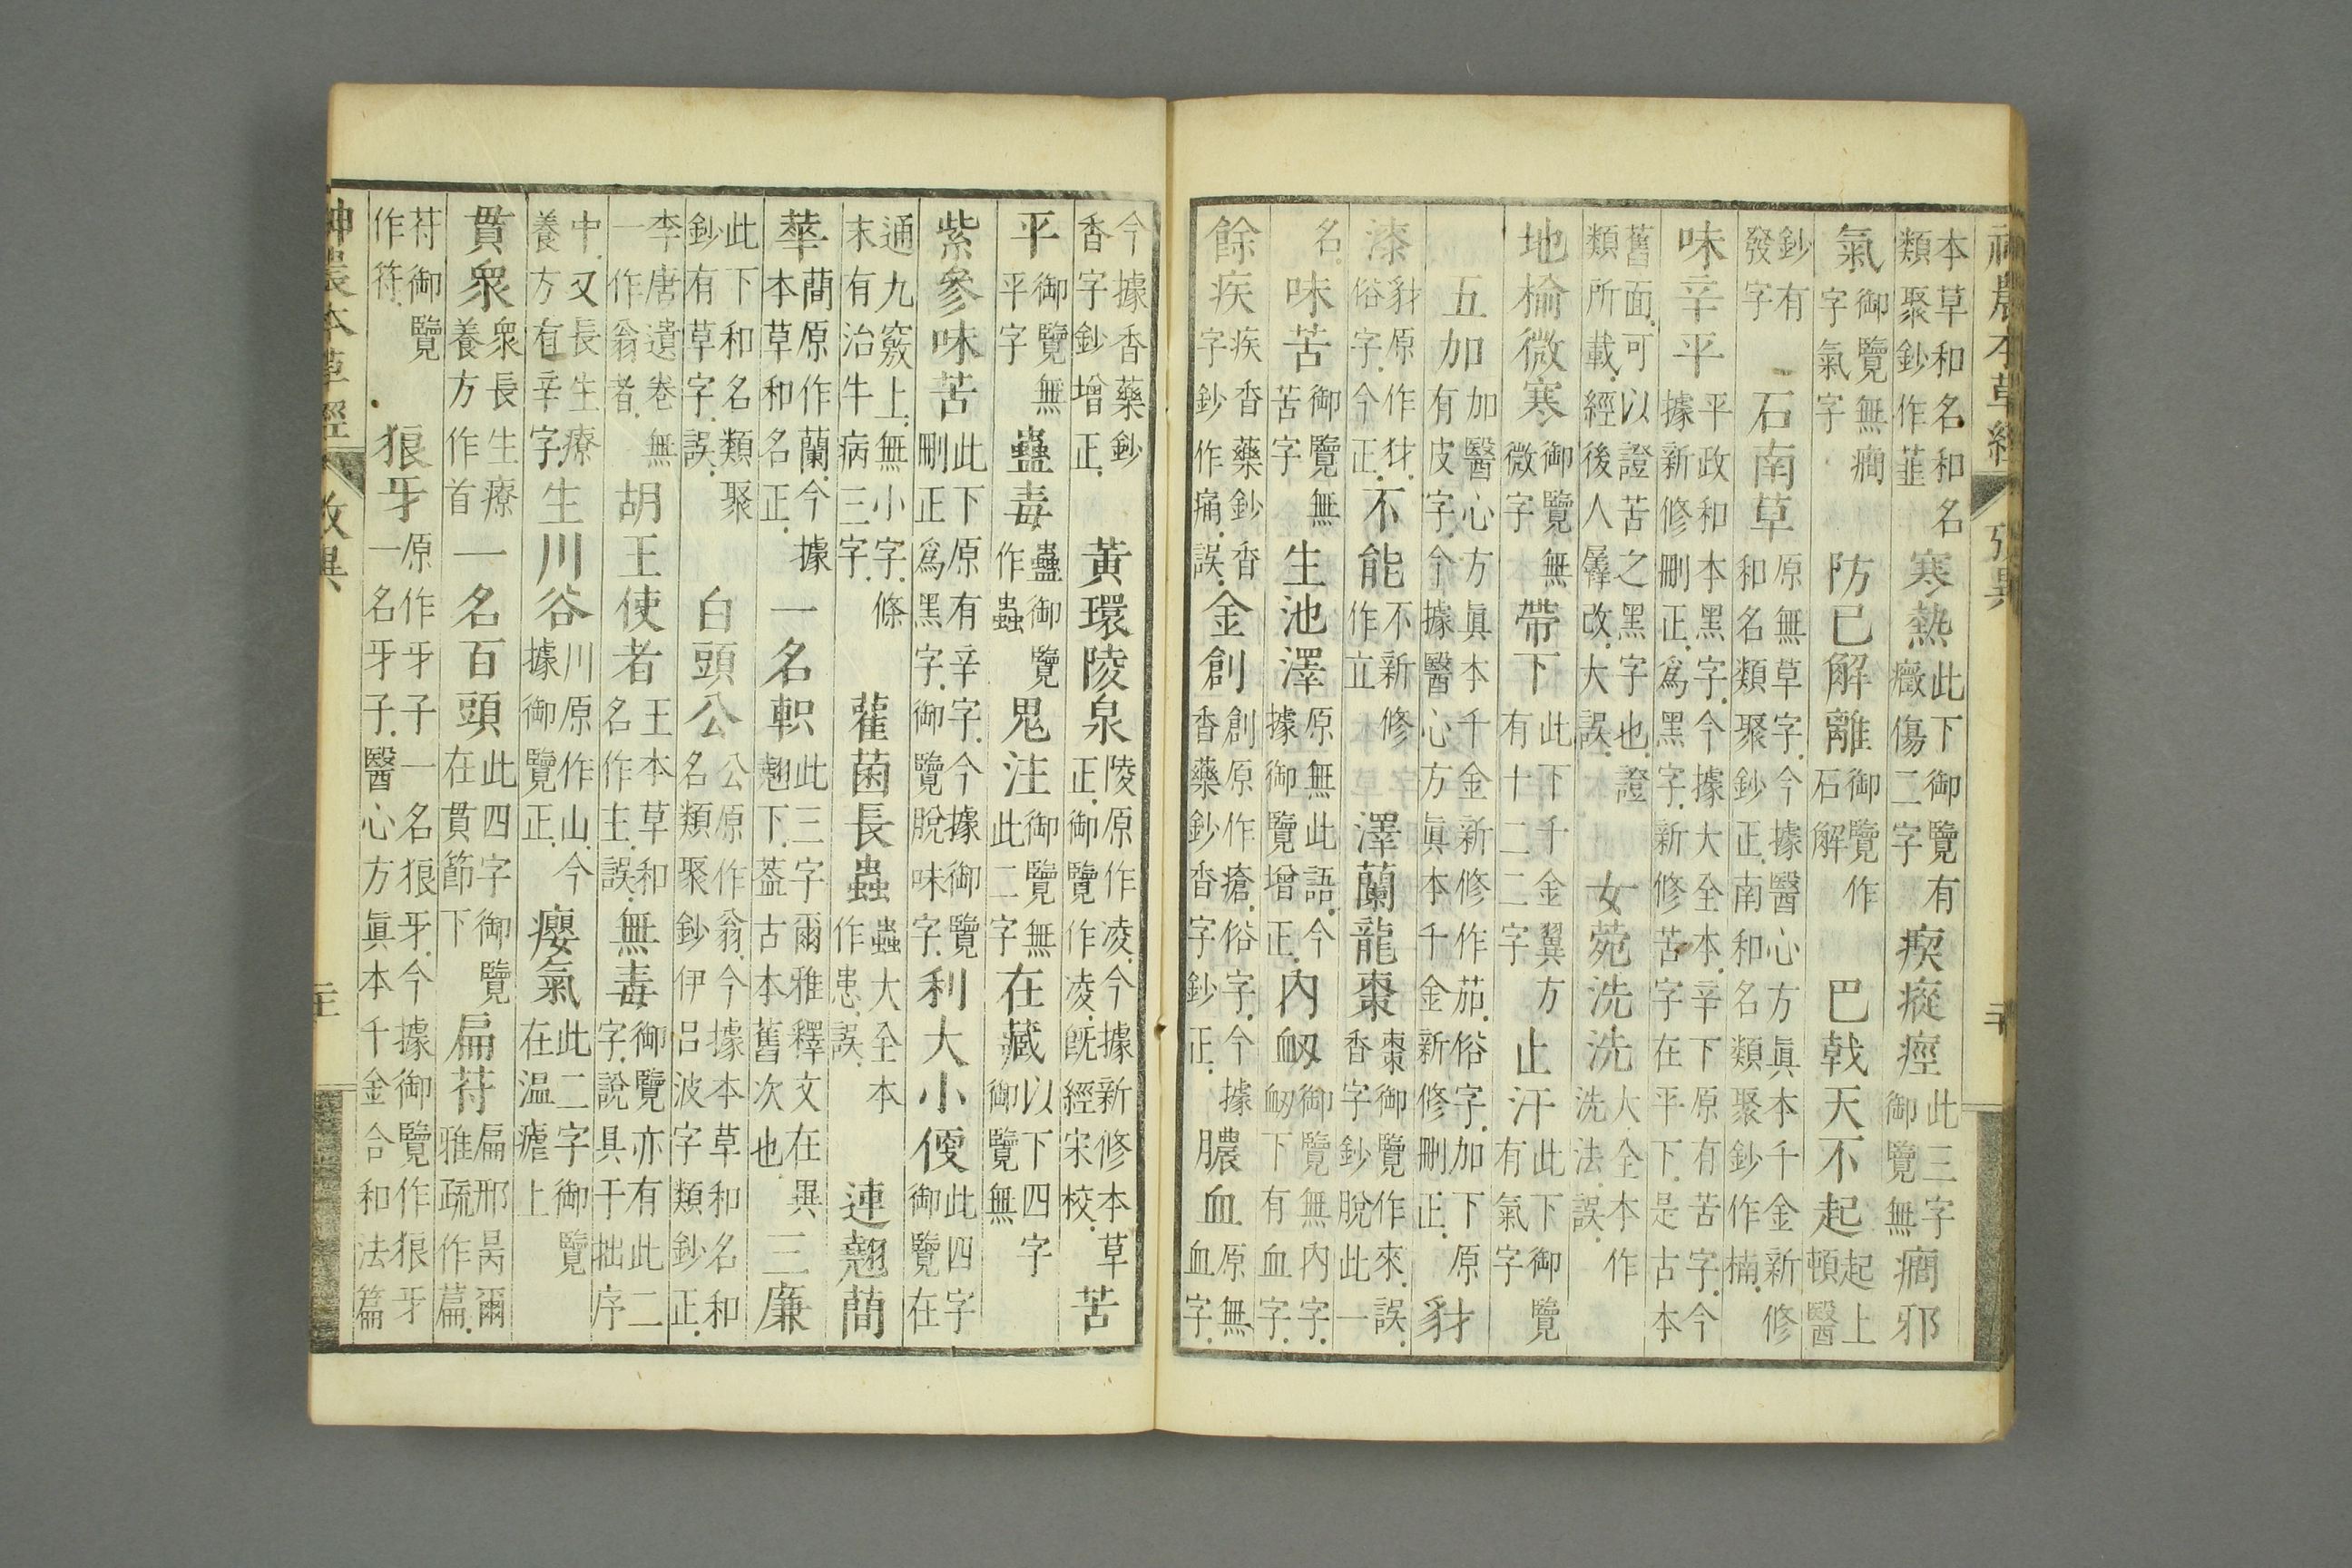 神農本草經 攷異 二十
本草和名和名類聚鈔作韮 寒熱 此下御覽有癥傷二字 瘈瘲痙 此三字御覽無 癎邪
氣 御覽無癎字氣字 防已解離 御覽作石解 巴戟天不起 起上頓醫
鈔有發字 石南草 原無草字.今據醫心方眞本千金新修和名類聚鈔正.南和名類聚鈔作楠.
味辛平 平政和本黑字.今據大全本.辛下原有苦字.今據新修刪正.爲黑字.新修苦字在平下.是古本
舊面.可以證苦之黑字也.證類所載.經後人羼改.大誤. 女菀洗洗 大全本作洗洗法.誤.
地榆微寒 御覽無微字 帶下 此下千金翼方有十二二字 止汗 此下御覽有氣字
五加 加醫心方眞本千金新修作茄.俗字.加下原有皮字.今據醫心方眞本千金新修刪正. 豺
漆 豺原作犲.俗字.今正. 不能 不新修作立 澤蘭龍棗 棗御覽作來.誤.香字鈔脫此一
名. 味苦 御覽無苦字 生池澤 原無此語.今據御覽增正. 內衂 御覽無內字.衂下有血字.
餘疾 疾香藥鈔香字鈔作痛.誤. 金創 創原作瘡.俗字.今據香藥鈔香字鈔正. 膿血 原無血字.
今據香藥鈔香字鈔增正. 黃環陵泉 陵原作凌.今據新修本草正.御覽作凌.旣經宋校. 苦
平 御覽無平字 蠱毒 蠱御覽作蟲 鬼注 御覽無此二字 在藏 以下四字御覽無
紫參味苦 此下原有辛字.今據御覽刪正爲黑字.御覽脫味字. 利大小便 此四字御覽在
通九竅上.無小字.條末有治牛病三字. 雚菌長蟲 蟲大全本作患.誤. 連翹蕳
華 蕳原作蘭.今據本草和名正. 一名軹 此三字爾雅釋文在異翹下.葢古本舊次也. 三廉
此下和名類聚鈔有草字.誤. 白頭公 公原作翁.今據本草和名和名類聚鈔伊呂波字類鈔正.
李唐遺卷無一作翁者. 胡王使者 王本草和名作主.誤. 無毒 御覽亦有此二字.說具于拙序
中.又長生療養方有辛字. 生川谷 川原作山.今據御覽正. 癭氣 此二字御覽在温瘧上
貫衆 衆長生療養方作首 一名百頭 此四字御覽在貫節下 扁苻 扁邢昺爾雅疏作篇.
苻御覽作符. 狼牙 原作牙子一名狼牙.今據御覽作狼牙一名牙子.醫心方眞本千金合和法篇
神農本草經 攷異